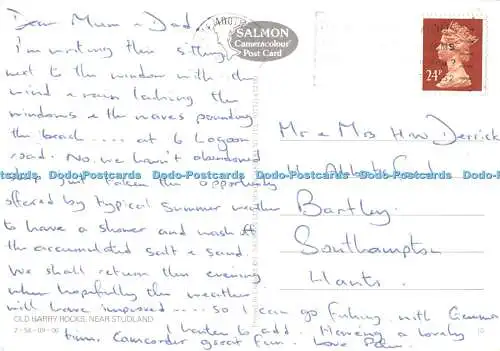 Dear Mum & Dad...
I'm writing this sitting
next to the window with the
wind & rain lashing the
windows & the waves pounding
the beach .... at 6 Lagoon
road. No, we haven't abandoned
ship just taken the opportunity
offered by typical summer weather
to have a shower and wash off
the accumulated salt & sand.
We shall return this evening
when hopefully the weather
will have improved .... so I can go fishing with Gemma
I hasten to add. Having a lovely
time. Camcorder great fun. Love
SALMON
Cameracolour
Post Card
24P
Mr & Mrs H.W. Derrick
Bartley
Southampton
Hants.
Dodo-Postcards Dodo-Postcards Dodo-Postcards Dodo-Postcards Dodo-Postcards
OLD HARRY ROCKS, NEAR STUDLAND
2-56-09-06